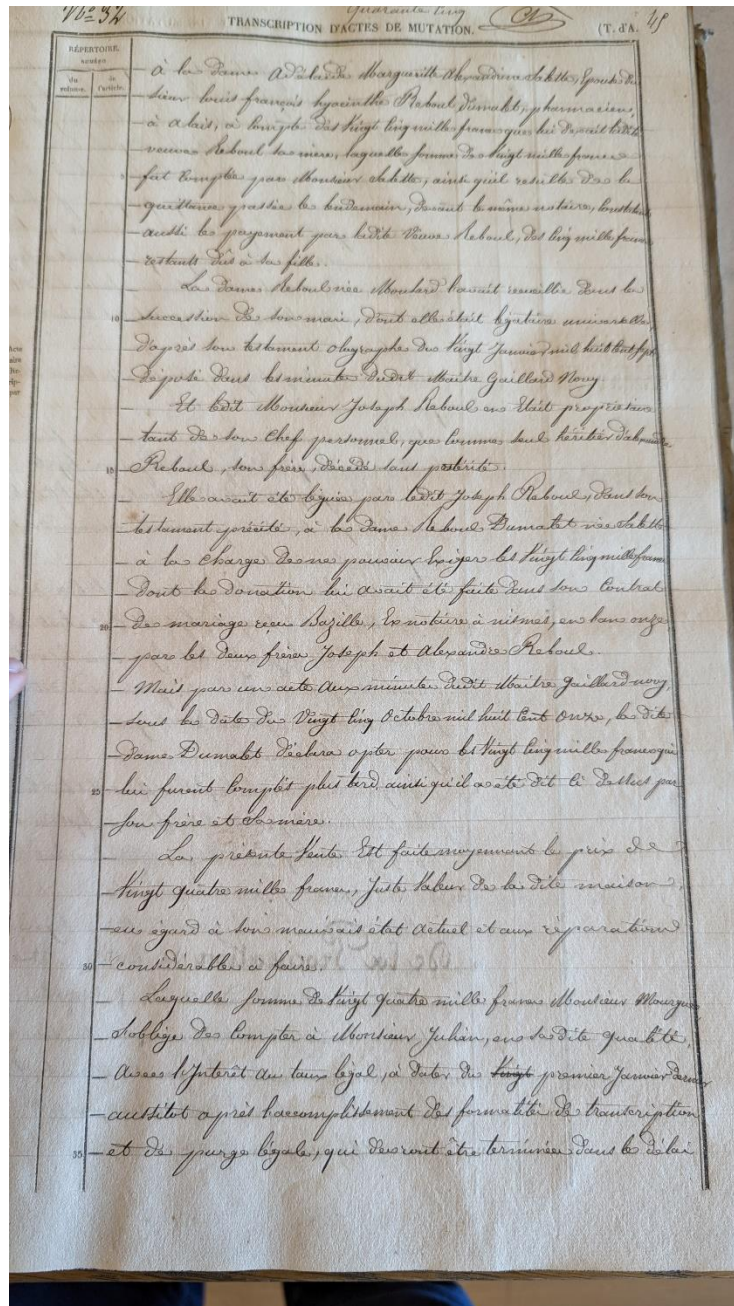 No 32
quarante cinq
TRANSCRIPTION D'ACTES DE MUTATION.
(T. d'A.
45
RÉPERTOIRE.
NUMÉRO
du volume.
de l'article.
à la Dame Adélaïde Margueritte Alexandrine Epouse du
sieur louis françois hyacinthe Reboul Dumalet, pharmacien,
à alais, à Compte des Vingt Cinq mille francs que lui devait ladite
veuve Reboul sa mère, laquelle somme de Vingt mille francs
5 fut Comptée par Monsieur ainsi qu'il resulte de la
quittance passée le lendemain, devant le même notaire, Constatant
aussi le payement par ladite Veuve Reboul, des Cinq mille francs
restants dûs à sa fille.
La Dame Reboul née l'avait recueillie dans la
10 succession de son mari, dont elle était légataire universelle
d'après son testament olographe du Vingt Janvier mil huit Cent sept
déposé dans les minutes dudit Maitre Gaillard Nouy
Et ledit Monsieur Joseph Reboul en Etait propriétaire
tant de son Chef personnel, que Comme seul héritier d'alexandre
15 Reboul, son frère, décédé sans postérité.
Elle avait été léguée par ledit Joseph Reboul, dans son
testament précité, à la Dame Reboul Dumalet née
à la Charge de ne pouvoir Exiger les Vingt Cinq mille francs
dont la donation lui avait été faite dans son Contrat
20 de mariage reçu Bazille, Ex notaire à nismes, en l'an onze
par les deux frères Joseph et Alexandre Reboul.
Mais par un acte aux minutes dudit Maitre Gaillard nouy,
sous la date du Vingt Cinq Octobre mil huit Cent Onze, la dite
Dame Dumalet déclara opter pour les Vingt Cinq mille francs qui
25 lui furent Comptés plus tard ainsi qu'il a été dit Ci dessus par
son frère et sa mère.
La présente Vente Est faite moyennant le prix de
Vingt quatre mille francs, Juste Valeur de la dite maison,
eu égard à son mauvais état actuel et aux réparations
30 considérables à faire.
Laquelle somme de Vingt quatre mille francs Monsieur Mourgues
s'oblige de Compter à Monsieur Julian, en sa dite qualité,
avec l'Intérêt au taux légal, à dater du Vingt premier Janvier dernier
aussitot après l'accomplissement des formalités de transcription
35 et de purge légale, qui devront être terminées dans le délai